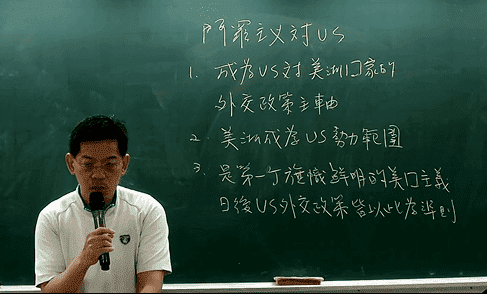 門羅主义对US
1. 成為US对美洲囗家的
外交政策主軸
2. 美洲成為US勢力範圍
3. 是第一个旗幟鮮明的美囗主義
日後US外交政策皆以此為準則